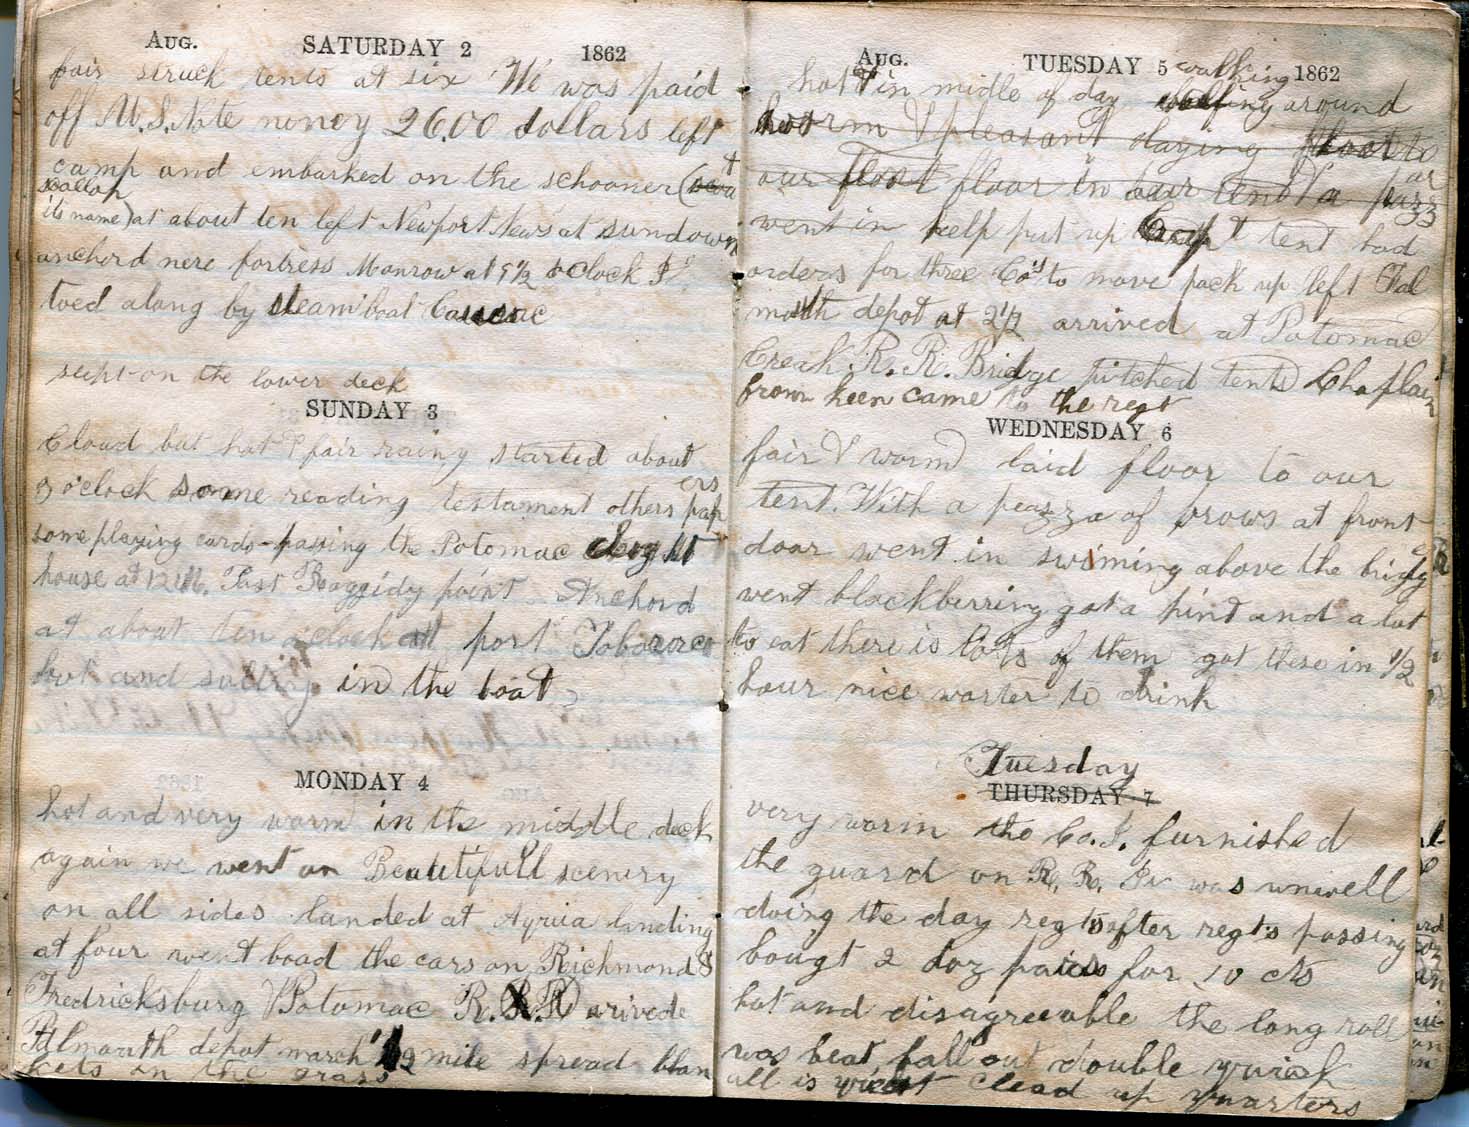 AUG. SATURDAY 2 1862
fair struck tents at six We was paid
off U.S. Note money 26.00 dollars left
camp and embarked on the schooner (
scallop
its name) at about ten left Newport News at sundown
anchord nere fortress Monrow at 9 1/2 oclock P.
toed along by steam boat
slept on the lower deck
SUNDAY 3
Cloud but hot & fair rainy started about
oclock some reading testament others pap
ers
some playing cards passing the Potomac
house at 12 M. Past Raggidy point Anchord
at about ten oclock at port Tobacco
hot and in the boat
MONDAY 4
hot and very warm in the middle deck
again we went on Beautifull scenery
on all sides landed at Aquia landing
at four went boad the cars on Richmond &
Fredricksburg & Potomac R. R. R arivede
Falmouth depot march 1/2 mile spread blan
kets on the grass
AUG. TUESDAY 5 1862
walking
hot & in midle of day around
warm & pleasant laying floor to
our floor in our tent a
went in help put up Capt tent had
orders for three Co's to move pack up left Fal
mouth depot at 2 1/2 arrived at Potomac
Creek R. R. Bridge pitched tents Chaplain
from keen came to the regt
WEDNESDAY 6
fair & warm laid floor to our
tent. With a peazza of brows at front
door went in swiming above the bridg
e
went blackberring got a pint and a lot
to eat there is lots of them got these in 1/2
hour nice warter to drink
Tuesday
THURSDAY 7
very warm the Co. I. furnished
the guard on R. R. Iv was unwell
doing the day regts after regts passing
bougt 2 doz for 10 cts
hot and disagreeable the long roll
was beat fall out double quick
all is quiet clead up quarters